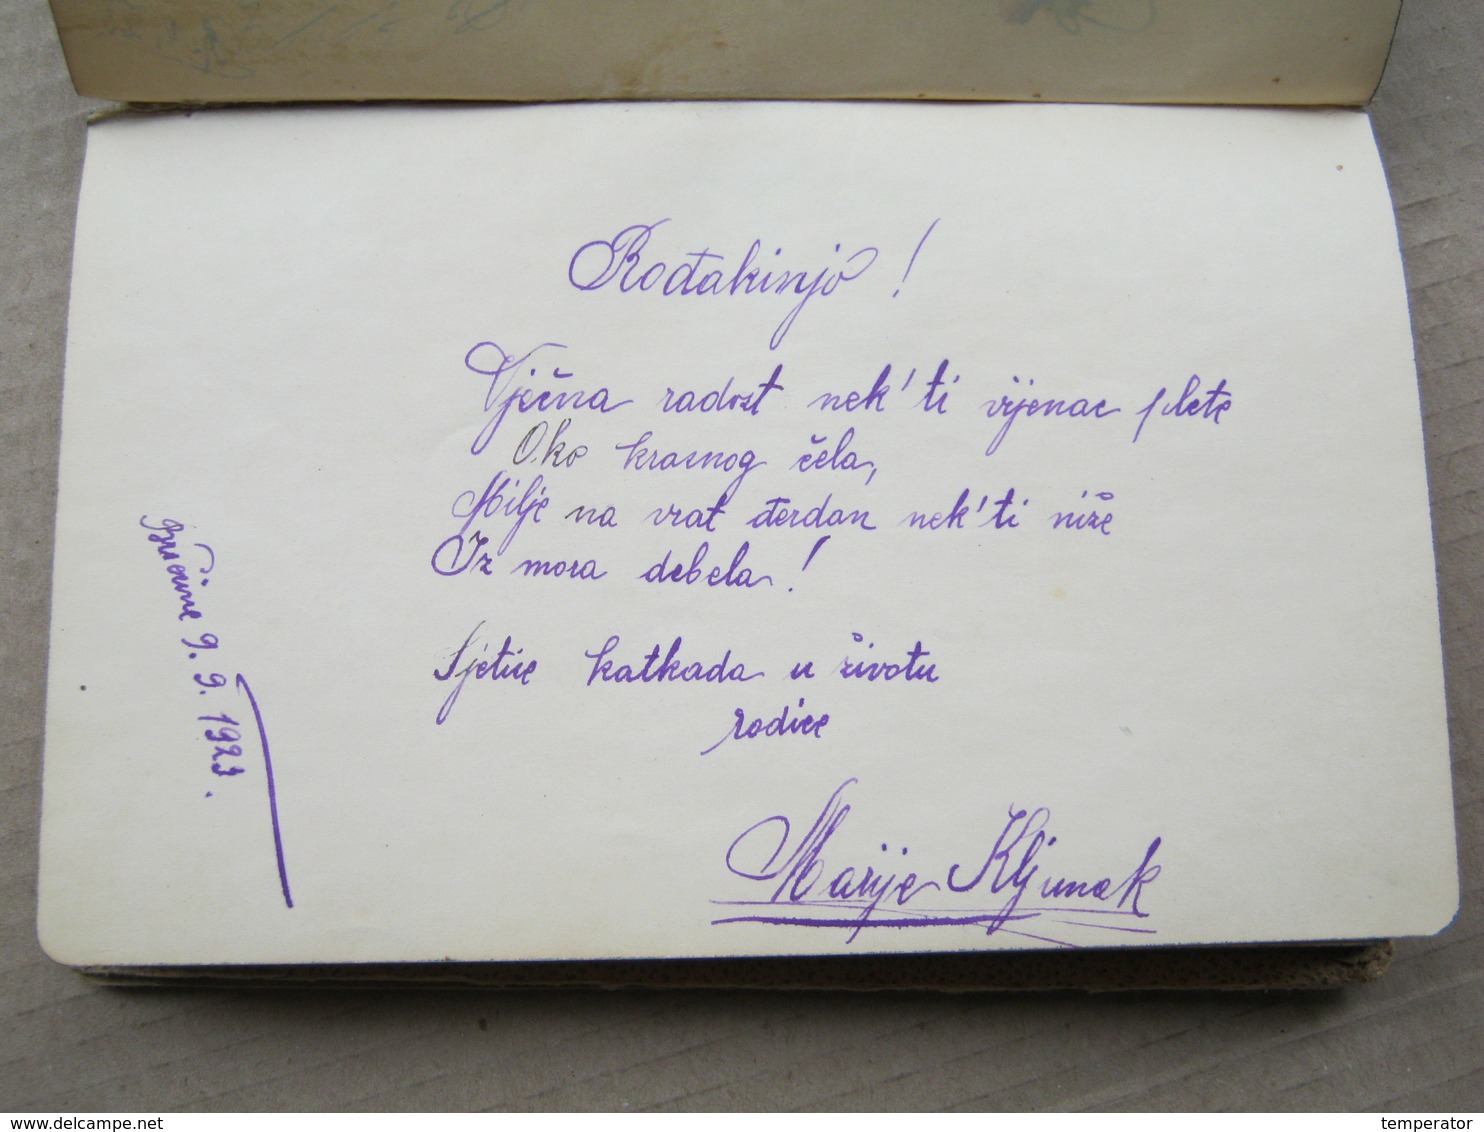 Rođakinjo!
Vječna radost nek' ti vijenac plete
Oko krasnog čela,
Milje na vrat đerdan nek' ti niže
Iz mora debela!
Sjetise katkada u životu
rodice
Marije Kljunak
9. 9. 1923.
www.delcampe.net
temperator